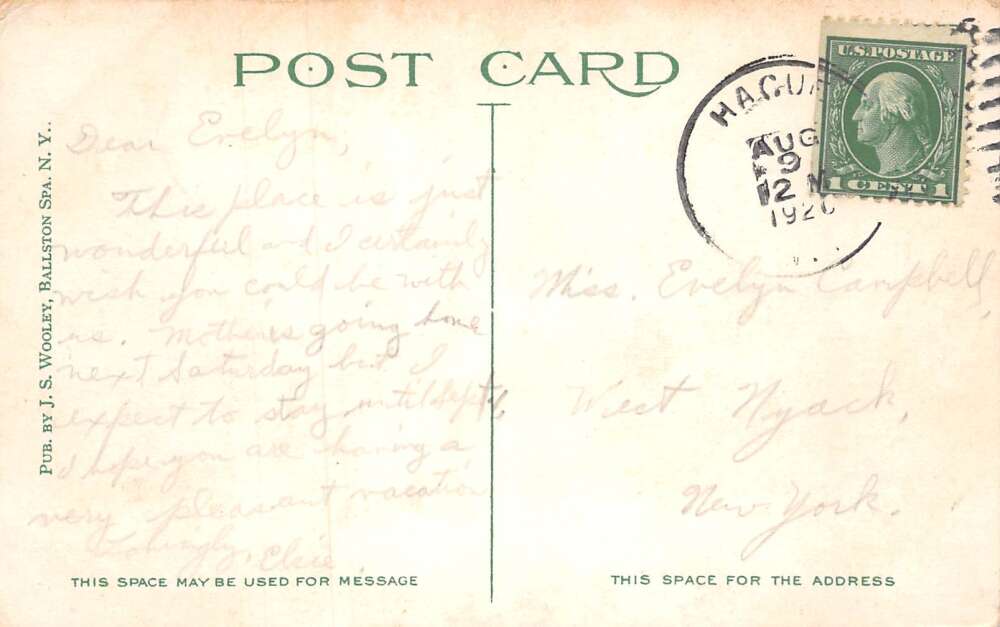 POST CARD
HAGUE
AUG
9
12 M
1920
U.S. POSTAGE
1 CENT 1
PUB. BY J. S. WOOLEY, BALLSTON SPA. N. Y..
Dear Evelyn,
This place is just
wonderful and I certainly
wish you could be with
us. Mother is going home
next Saturday but I
expect to stay until Sept
I hope you are having a
very pleasant vacation
Lovingly, Elsie
Miss. Evelyn Campbell,
West Nyack,
New York.
THIS SPACE MAY BE USED FOR MESSAGE
THIS SPACE FOR THE ADDRESS